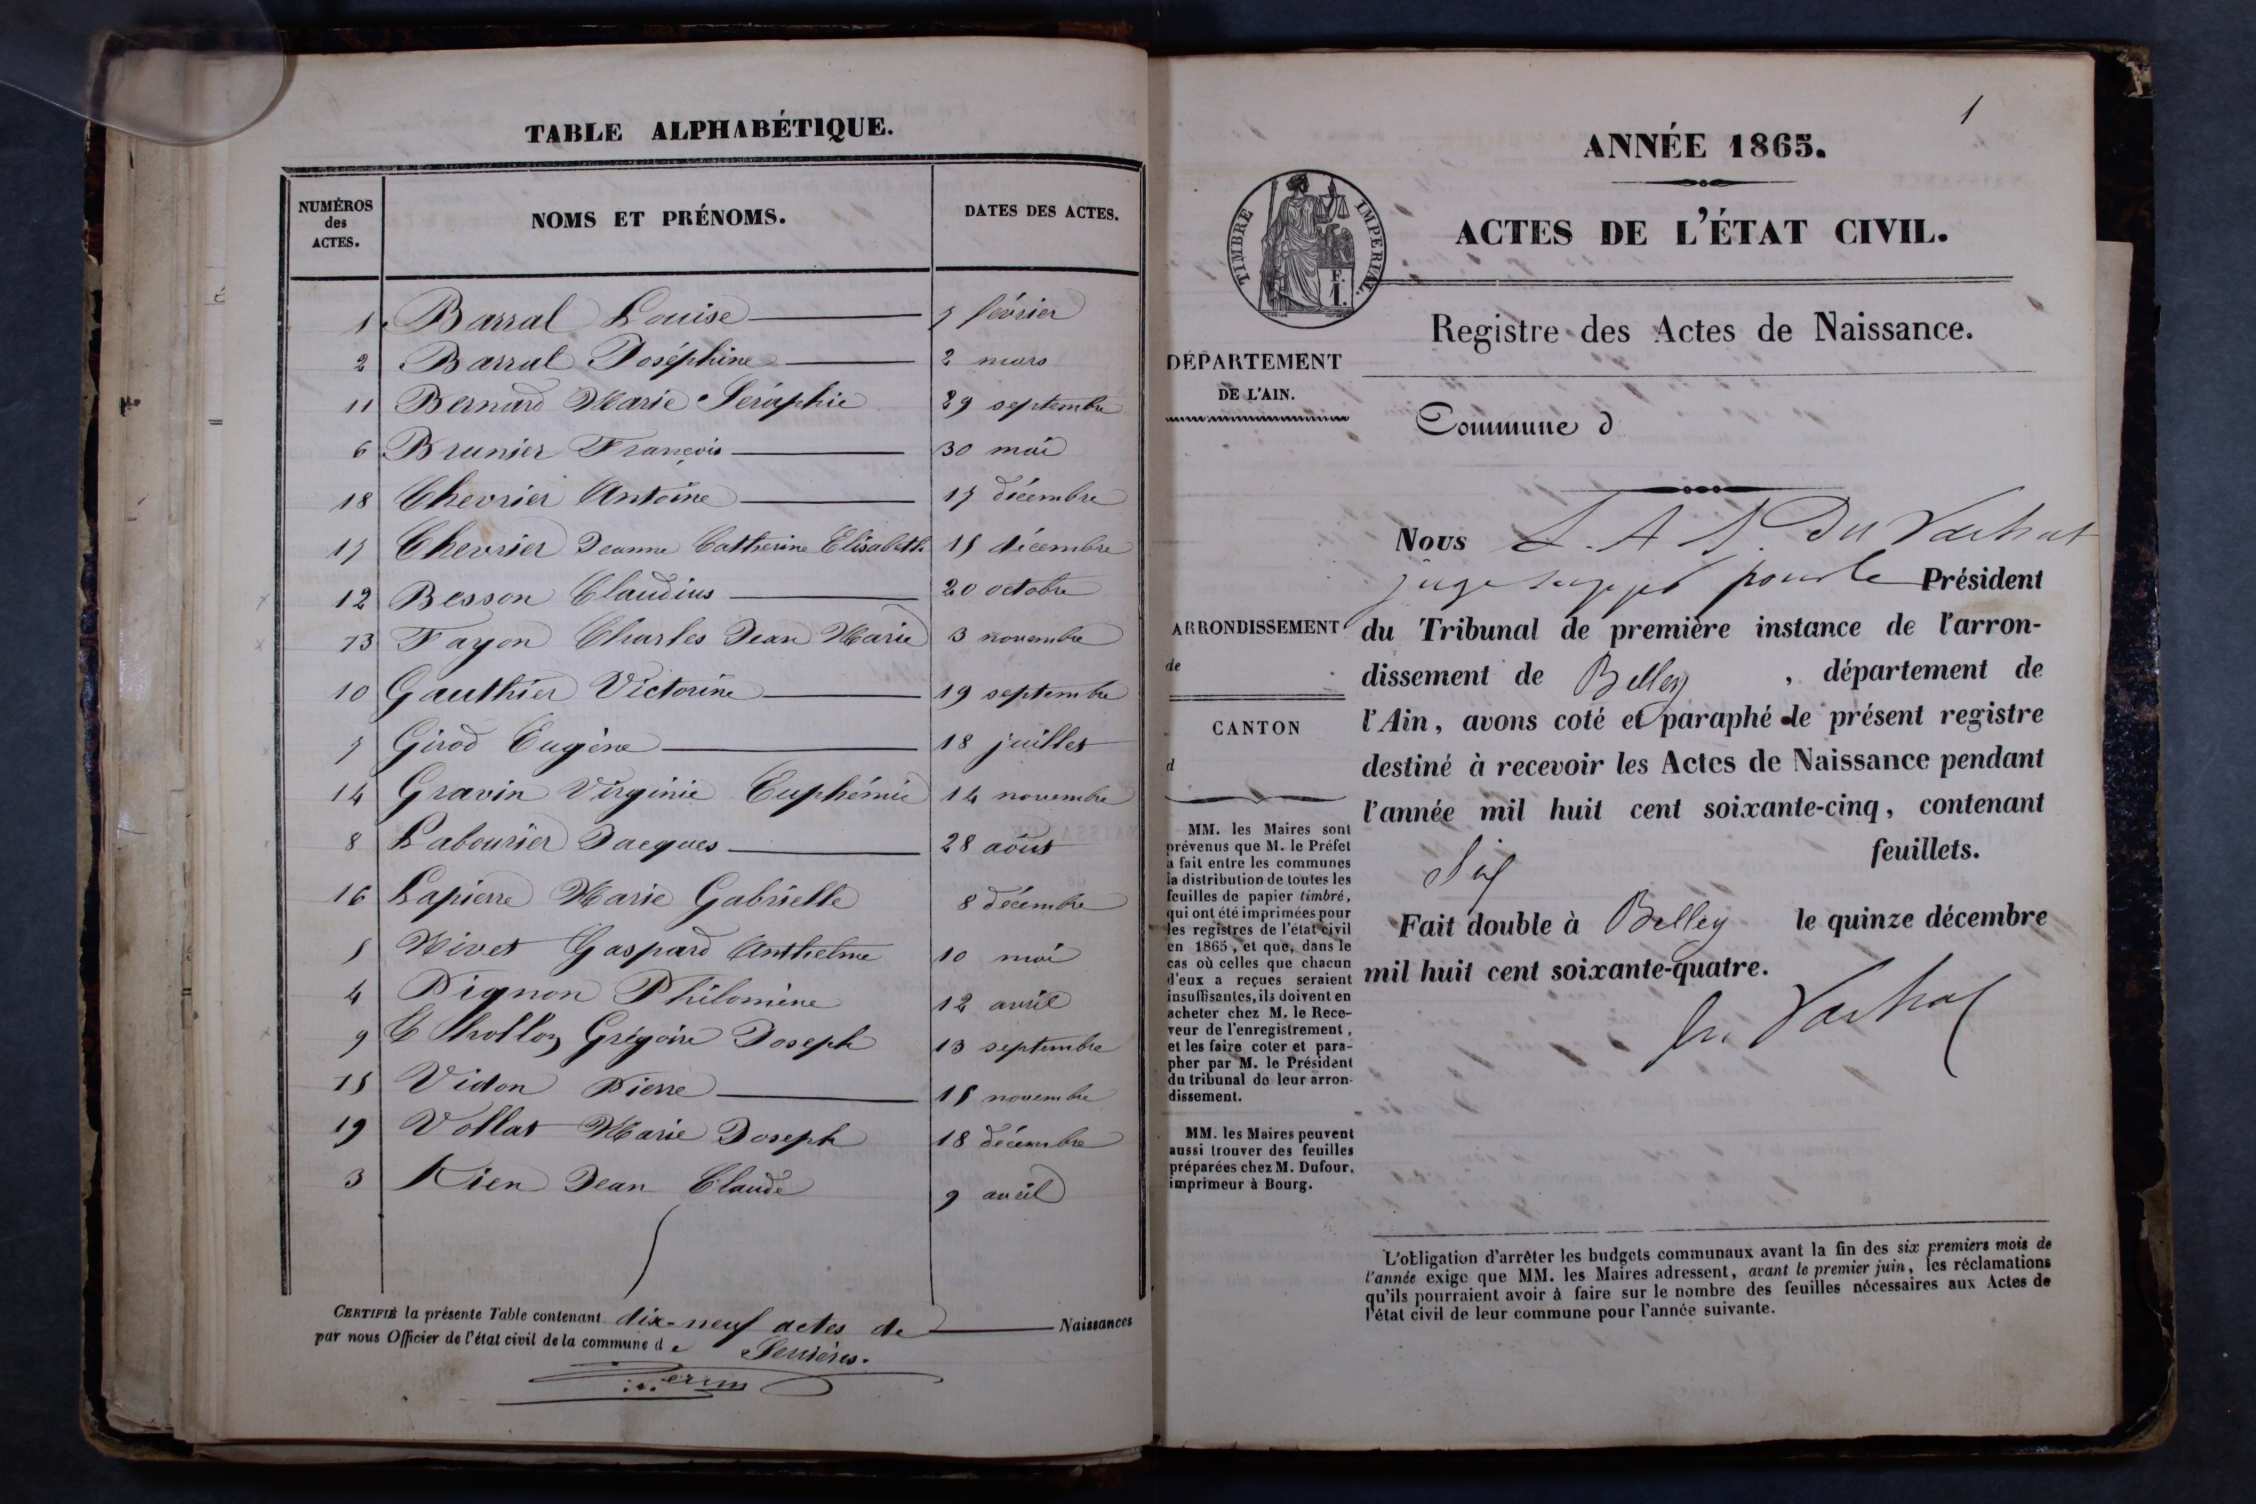 TABLE ALPHABÉTIQUE.
NUMÉROS des ACTES. NOMS ET PRÉNOMS. DATES DES ACTES.
1 Barral Louise 7 février
2 Barral Joséphine 2 mars
11 Bernard Marie Séraphie 29 septembre
6 Brunier François 30 mai
18 Chevrier Antoine 17 décembre
17 Chevrier Jeanne Catherine Elisabeth 15 décembre
12 Besson Claudius 20 octobre
13 Fayon Charles Jean Marie 3 novembre
10 Gauthier Victorine 19 septembre
7 Girod Eugène 18 juillet
14 Gravin Virginie Euphémie 14 novembre
8 Labourier Jacques 28 août
16 Lapierre Marie Gabrielle 8 décembre
5 Nivet Gaspard Anthelme 10 mai
4 Pignon Philomène 12 avril
9 Thollon Grégoire Joseph 13 septembre
15 Vidon Pierre 15 novembre
19 Vollat Marie Joseph 18 décembre
3 Jean Claude 9 avril
CERTIFIÉ la présente Table contenant dix-neuf actes de Naissances
par nous Officier de l'état civil de la commune de Serrières.
Perrin
1
ANNÉE 1865.
TIMBRE IMPERIAL.
F.
1.
ACTES DE L'ÉTAT CIVIL.
Registre des Actes de Naissance.
DÉPARTEMENT
DE L'AIN.
Commune d
ARRONDISSEMENT
de
CANTON
d
MM. les Maires sont
prévenus que M. le Préfet
a fait entre les communes
la distribution de toutes les
feuilles de papier timbré,
qui ont été imprimées pour
les registres de l'état civil
en 1865, et que, dans le
cas où celles que chacun
d'eux a reçues seraient
insuffisantes, ils doivent en
acheter chez M. le Rece-
veur de l'enregistrement,
et les faire coter et para-
pher par M. le Président
du tribunal de leur arron-
dissement.
MM. les Maires peuvent
aussi trouver des feuilles
préparées chez M. Dufour,
imprimeur à Bourg.
Nous Du Vachat
juge pour le Président
du Tribunal de première instance de l'arron-
dissement de Belley, département de
l'Ain, avons coté et paraphé le présent registre
destiné à recevoir les Actes de Naissance pendant
l'année mil huit cent soixante-cinq, contenant
Six feuillets.
Fait double à Belley le quinze décembre
mil huit cent soixante-quatre.
Du Vachat
L'obligation d'arrêter les budgets communaux avant la fin des six premiers mois de
l'année exige que MM. les Maires adressent, avant le premier juin, les réclamations
qu'ils pourraient avoir à faire sur le nombre des feuilles nécessaires aux Actes de
l'état civil de leur commune pour l'année suivante.